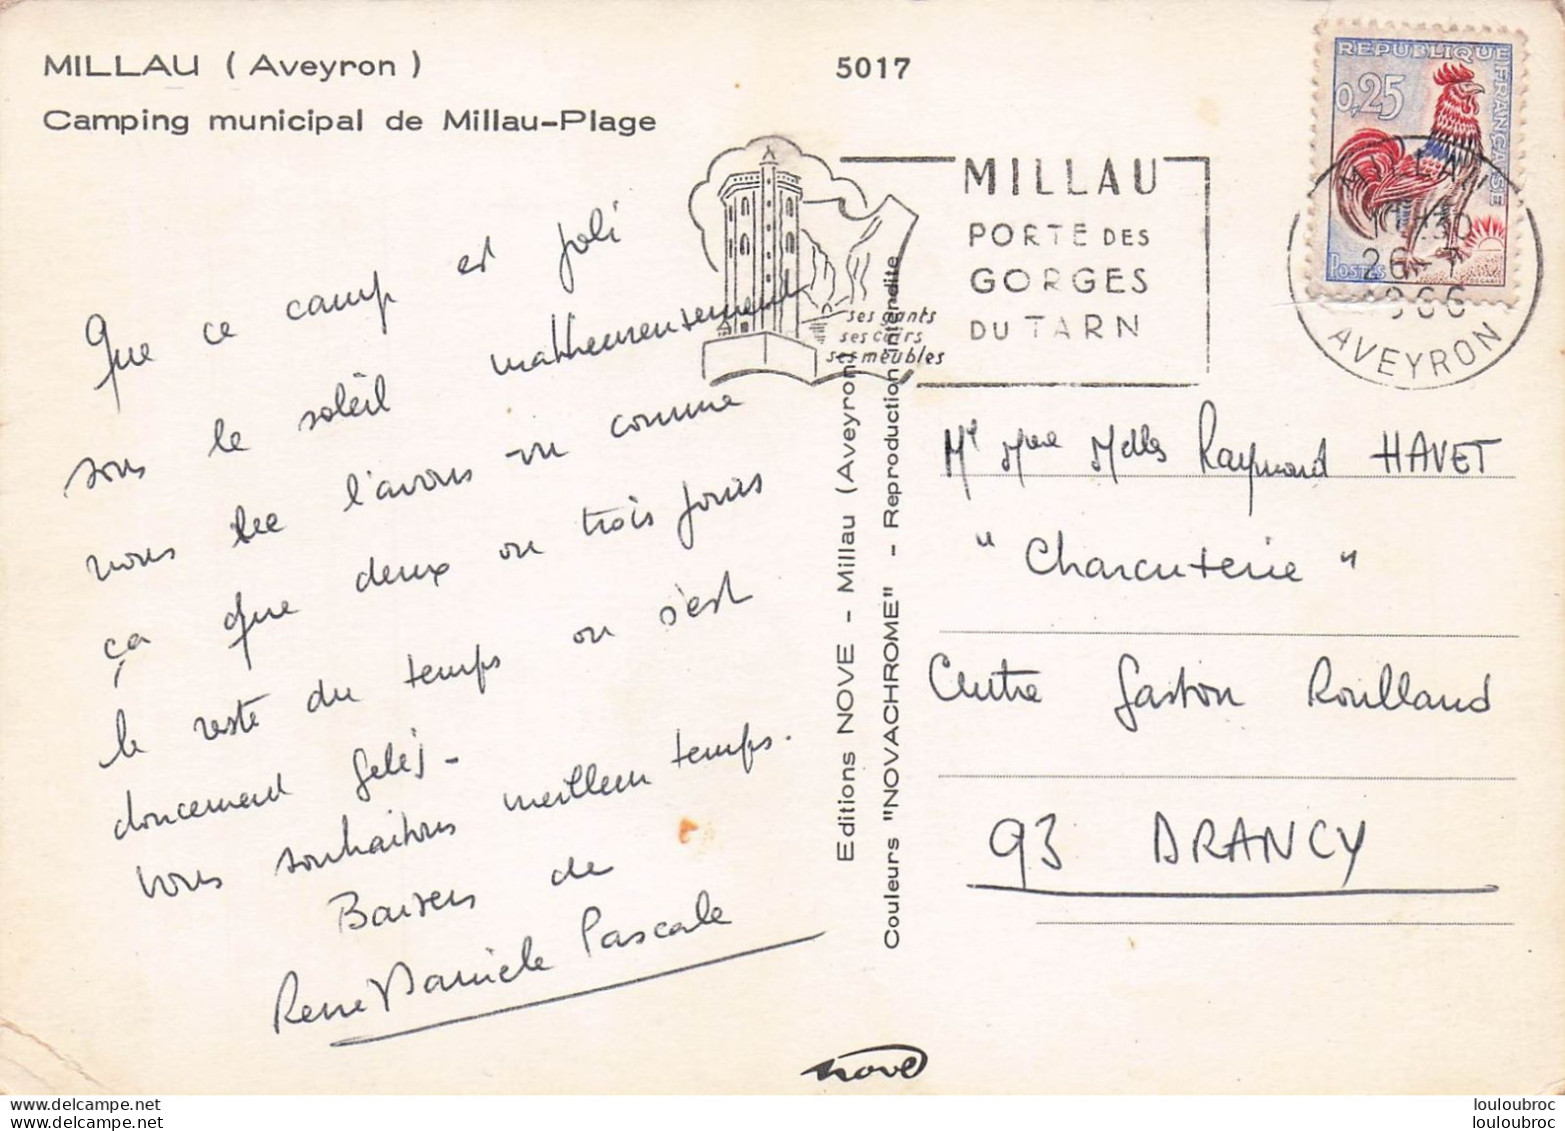 MILLAU ( Aveyron )
Camping municipal de Millau-Plage
5017
Que ce camp est joli
sous le soleil malheureusement
nous ne l'avons vu comme
ça que deux ou trois jours
le reste du temps on s'est
doucement gelés -
Vous souhaitons meilleur temps.
Baisers de
René Danièle Pascale
Editions NOVE - Millau (Aveyron)
Couleurs "NOVACHROME" - Reproduction interdite
MILLAU
PORTE DES
GORGES
DU TARN
ses gants
ses cuirs
ses meubles
REPUBLIQUE FRANÇAISE
0,25
POSTES
MILLAU
26 - 7
1966
AVEYRON
Mr Mme Melles Raymond HAVET
" Charcuterie "
Centre Gaston Roulland
93 DRANCY
nove
louloubroc
louloubroc
louloubroc
louloubroc